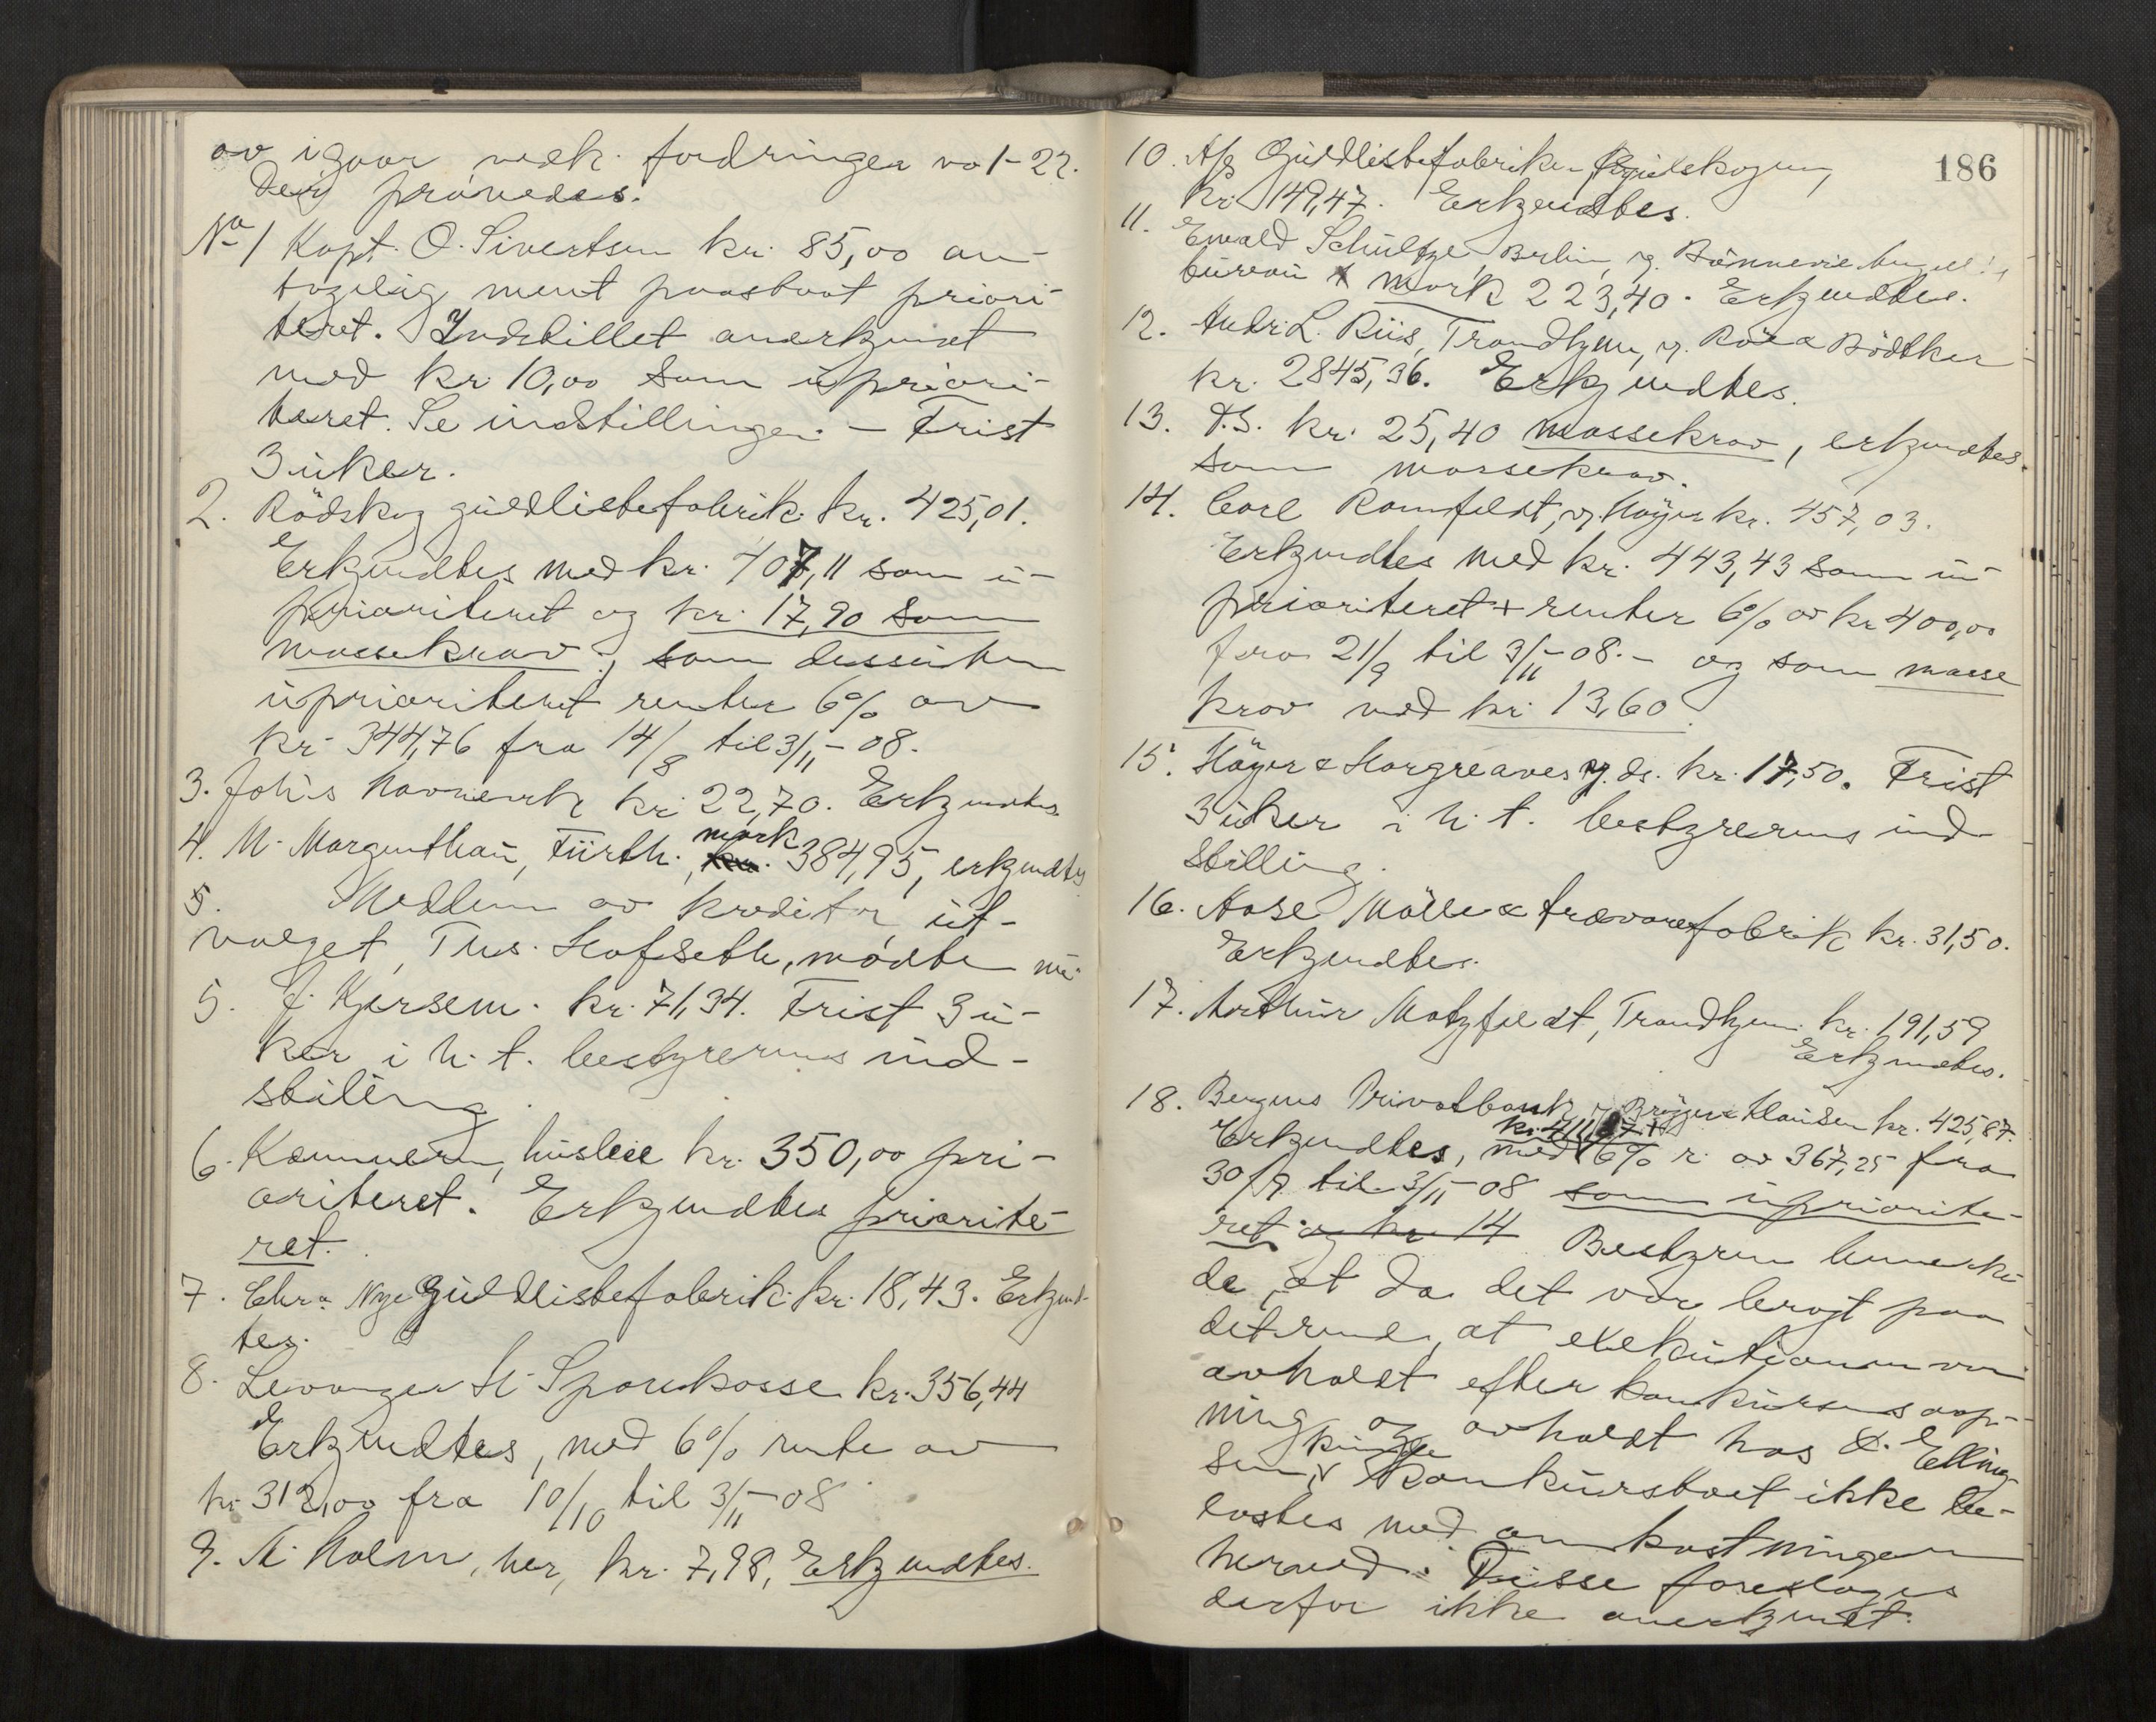 av igaar vedk. fordringer no 1-22.
Dev prövedes.
No 1 Kapt. O. Sivertsen kr. 85,00 an-
tagelig ment paastaat priori-
teret. Indstillet anerkjendt
med kr. 10,00 som upriori-
teret. Se indstillingen. - Frist
3 uker.
2. Rödskog guldlistefabrik kr. 425,01.
Erkjendtes med kr. 407,11 som u-
prioriteret og kr. 17,90 som
massekrav; som dessuten
uprioriteret renter 6% av
kr. 344,76 fra 14/8 til 3/11-08.
3. Joh's Navneverk kr. 22,70. Erkjendtes
4. M. Morgenthau, Fürth, mark 384,95, erkjendtes
5. Medlem av kreditor ut-
valget, Ths. Hofseth, mödte nu
5. J. Kjersem. kr. 71,34. Frist 3 u-
ker i h. t. bestyrerens ind-
stilling.
6. Kæmneren, husleie kr. 350,00 pri-
oriteret. Erkjendtes priorite-
ret.
7. Chra Nye Guldlistefabrik kr. 18,43. Erkjend-
tes.
8. Levanger Sparekasse kr. 356,44
Erkjendtes, med 6% rente av
kr 312,00 fra 10/10 til 3/11-08
9. M. Holm, her, kr. 7,98, Erkjendtes.
186
10. A/s Guldlistefabriken
kr. 149,47. Erkjendtes.
11. Ewald Schültze, Berlin, v.
bureau mark 223,40. Erkjendtes.
12. Andr. L. Riis, Trondhjem, v. Roll & Bödtker
kr. 2845,36. Erkjendtes.
13. D.S. kr. 25,40 massekrav, erkjendtes
som massekrav.
14. Carl Ramfeldt, v. Höyer kr. 457,03.
Erkjendtes med kr. 443,43 som u-
prioriteret + renter 6% av kr 400,00
fra 21/9 til 3/11-08. - og som masse
krav med kr. 13,60.
15. Höyer & Hargreaves v. ds. kr. 17,50. Frist
3 uker i h. t. bestyrerens ind-
stilling.
16. Aase Mölle & Trævarefabrik kr. 31,50.
Erkjendtes.
17. Arthur Motzfeldt, Trondhjem kr. 191,59
Erkjendtes.
18. Bergens Privatbank v. Brügger & Clausen kr. 425,87.
kr. 411,87 +
Erkjendtes, med 6% r. av 367,25 fra
30/9 til 3/11-08 som upriorite-
ret og kr 14 Bestyren bemerke-
de, at da det var bragt paa
det rene, at exekutionen var
avholdt efter konkursens aap-
ning og avholdt hos E. Elling-
sen, kunde konkursboet ikke be-
lastes med omkostningerne
herved. Disse foreslages
derfor ikke anerkjendt.